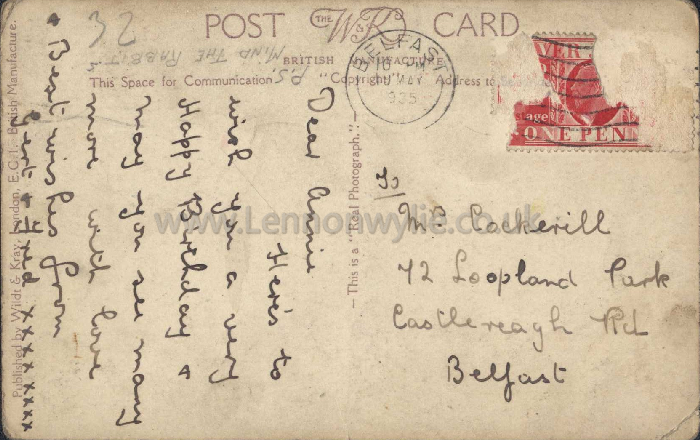 POST CARD
THE W&K SERIES
BRITISH MANUFACTURE
This Space for Communication
"Copyright"
Address to
Published by Wildt & Kray, London, E.C.1. British Manufacture.
—This is a "Real Photograph."—
BELFAST
10
MAY
1935
VER
ONE PEN
P.S.
MIND THE RABBITS
Dear Annie
Here's to
wish you a very
Happy Birthday &
may you see many
more with love
& Best wishes from
Gert & Fred x x x x x x
xxxxxx
To
Mrs Cockerill
72 Loopland Park
Castlereagh Rd
Belfast
www.Lennonwylie.co.uk